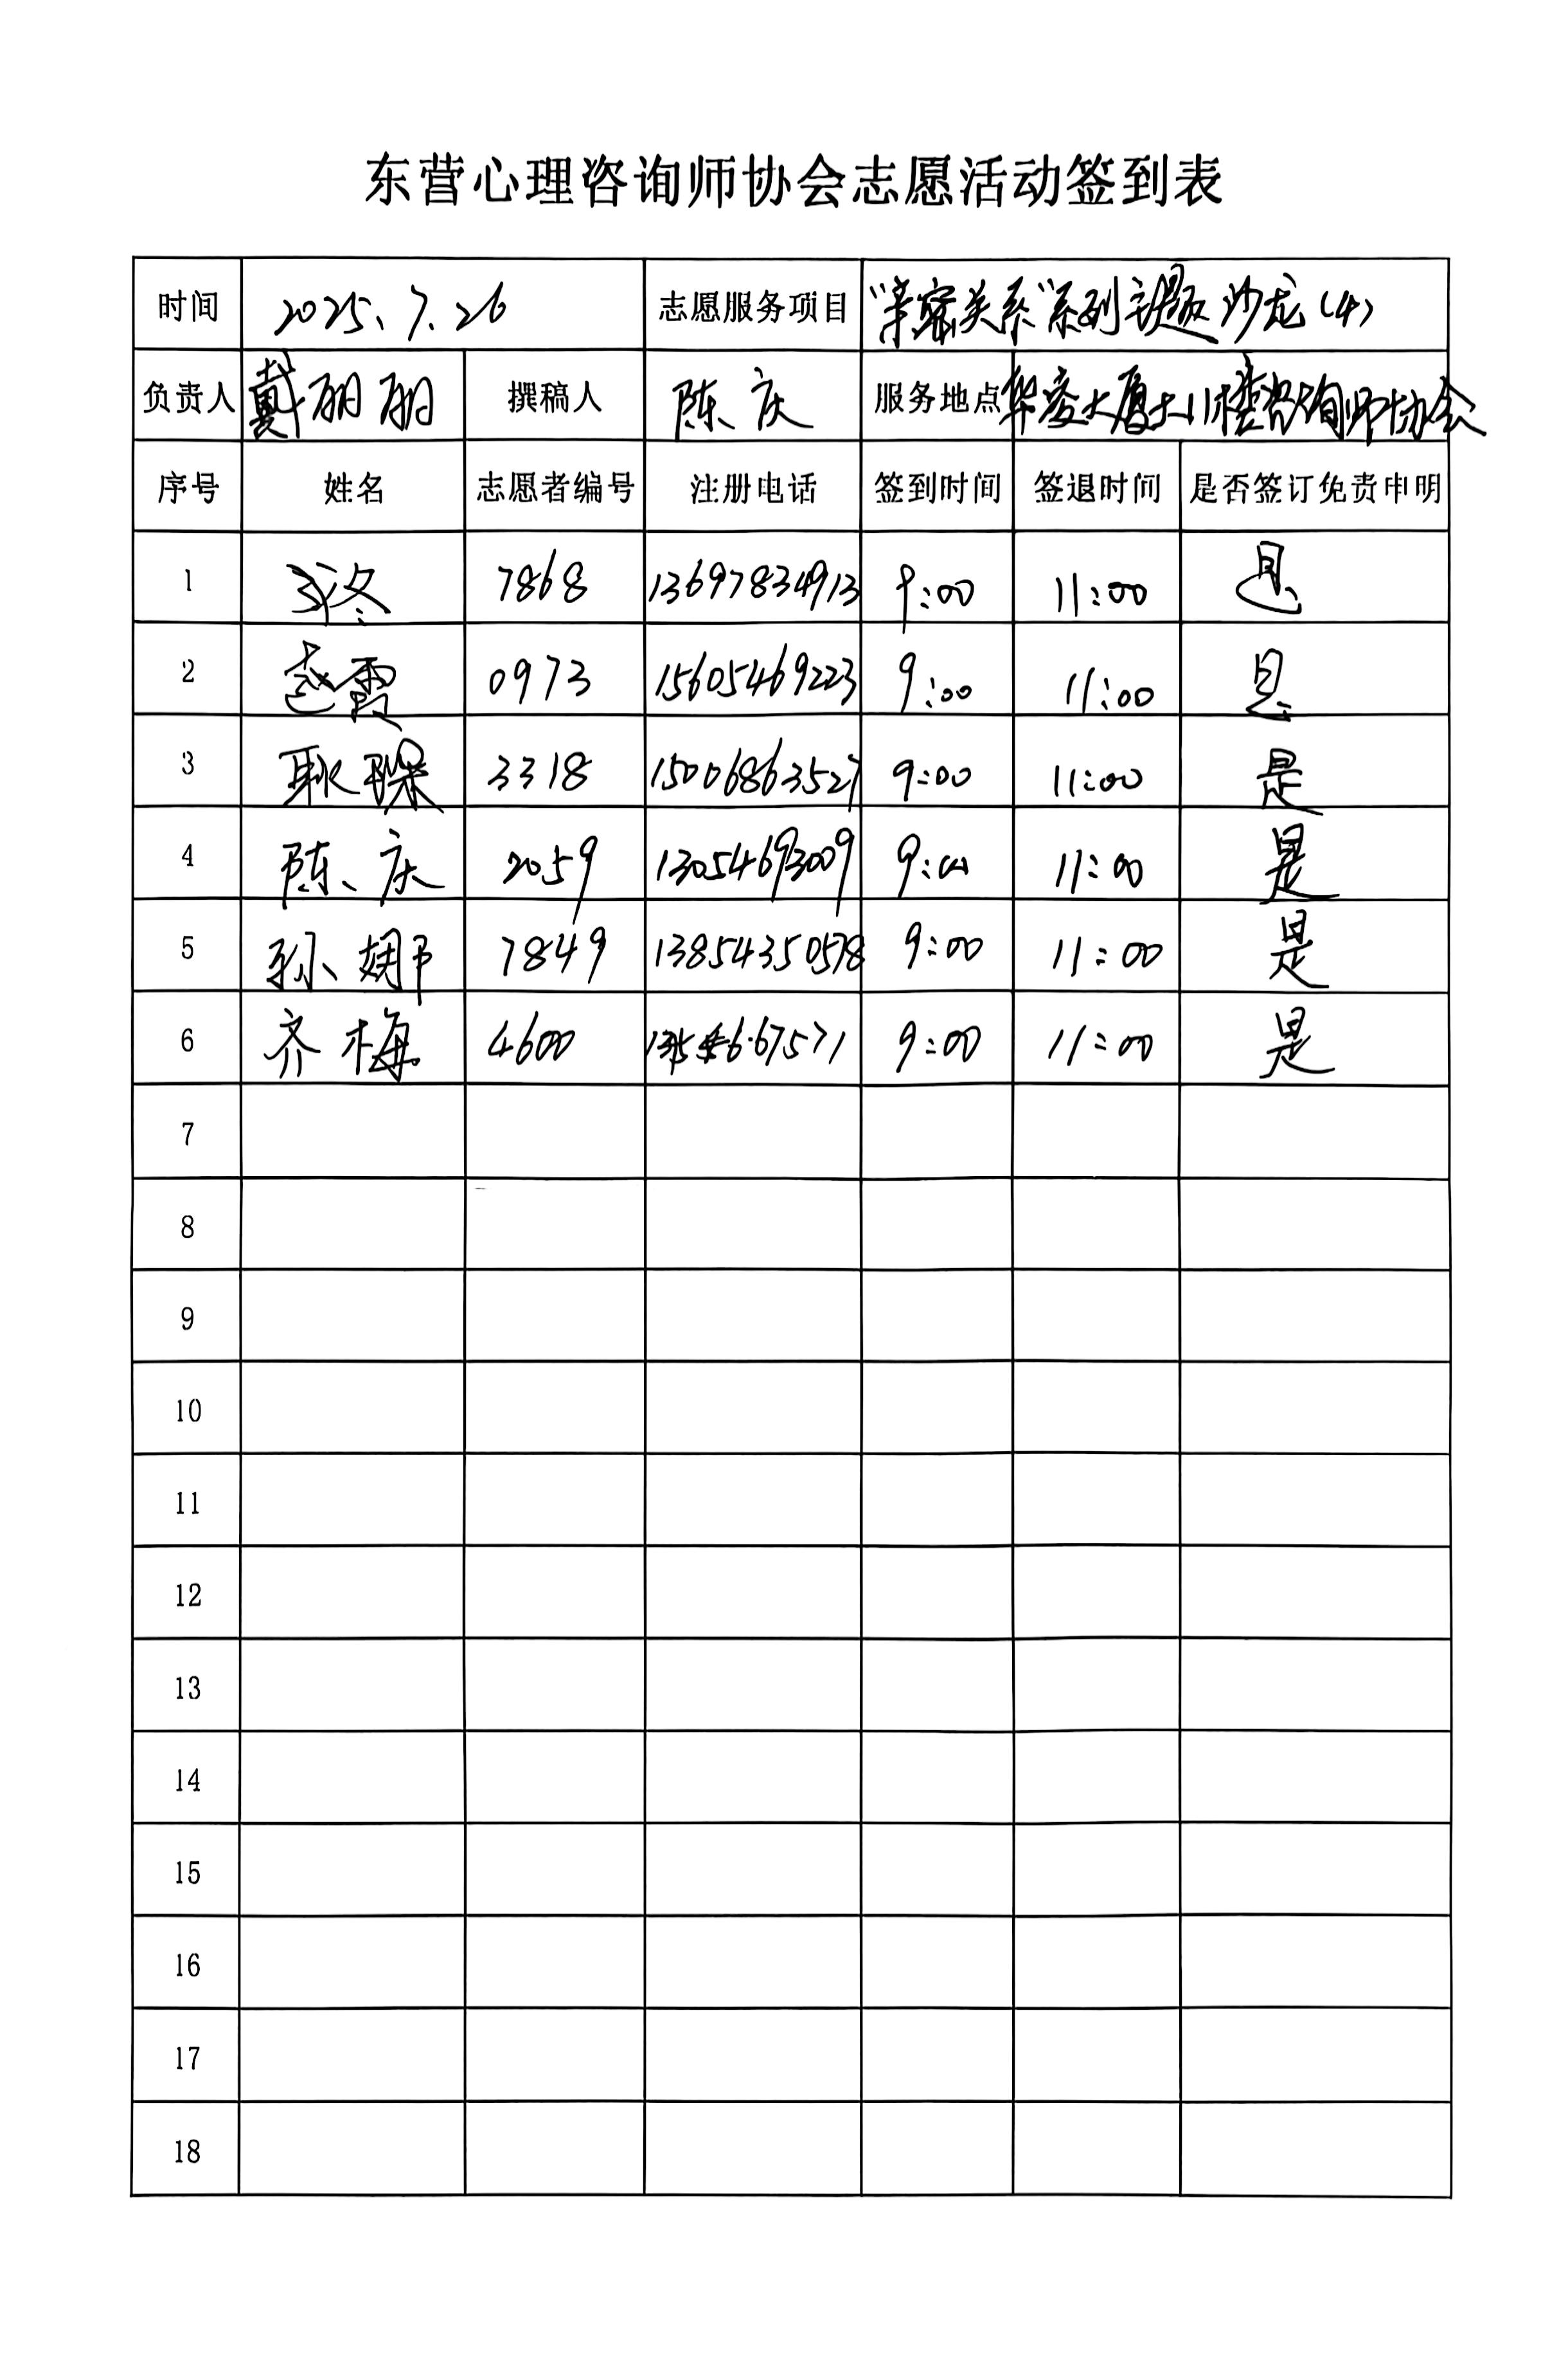 东营心理咨询师协会志愿活动签到表
时间 2025.7.26 志愿服务项目 "亲密关系"系列主题沙龙(4)
负责人 戴丽丽 撰稿人 陈庆 服务地点 大厦 11楼咨询师协会
序号 姓名 志愿者编号 注册电话 签到时间 签退时间 是否签订免责申明
1 7868 13697834913 9:00 11:00 是
2 赵霞 0973 15605469223 9:00 11:00 是
3 耿琛 3318 15006863527 9:00 11:00 是
4 陈庆 2059 13054693009 9:00 11:00 是
5 孙娜 7849 13854350578 9:00 11:00 是
6 齐梅 4600 9:00 11:00 是
7
8
9
10
11
12
13
14
15
16
17
18